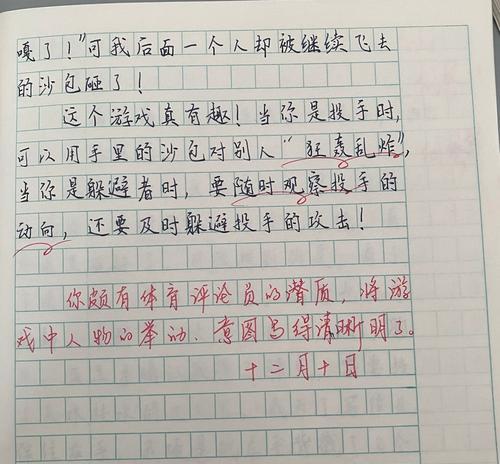 嘎了！”可我后面一个人却被继续飞去
的沙包砸了！
这个游戏真有趣！当你是投手时，
可以用手里的沙包对别人“狂轰乱炸”，
当你是躲避者时，要随时观察投手的
动向，还要及时躲避投手的攻击！
你颇有体育评论员的潜质，将游
戏中人物的举动、意图写得清晰明了。
十二月十日